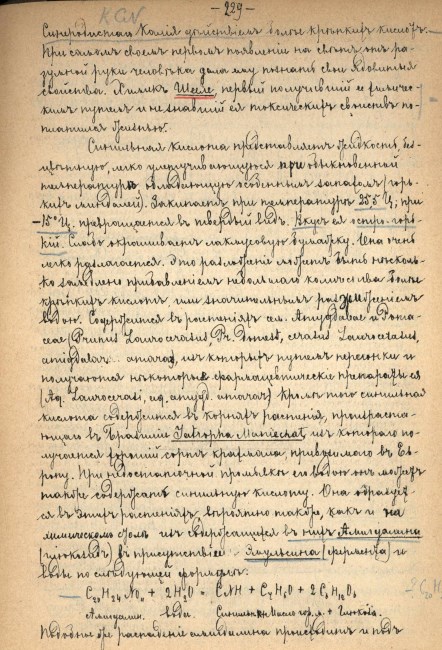 KCN
- 229 -
Синеродистаго Калiя дѣйствiемъ болѣе крѣпкихъ кислотъ.
При самомъ своемъ первомъ появленiи на свѣтъ отъ ра-
зумной руки человѣка дала ему познать свои ядовитыя
свойства. Химикъ Шееле, первый получившiй ее химичес-
кимъ путемъ и не знавшiй ея токсическихъ свойствъ по-
платился жизнью.
Синильная кислота представляетъ жидкость, без-
цвѣтную, легко улетучивающуюся при обыкновенной
температурѣ обладающую особеннымъ запахомъ (горь-
кихъ миндалей). Закипаетъ при температурѣ 25,5 Ц; при
-15° Ц. превращается въ твердый видъ. Вкусъ ея остро-горь-
кiй. Слабо окрашиваетъ лакмусовую бумажку. Она очень
легко разлагается. Это разложенiе можетъ быть нѣсколь-
ко замедлено прибавленiемъ небольшаго количества болѣе
крѣпкихъ кислотъ, или значительнымъ разжиженiемъ
водою. Содержится въ растенiяхъ сем. Amygdaleae и Poma-
ceae (Prunus Laurocerasus, Pr. Domest., cerasus Laurocerasus,
amigdalar. amarae), изъ которыхъ путемъ перегонки и
получаются нѣкоторые фармацевтическiе препараты ея
(Aq. Laurocerasi, aq. amygd. amarar.) кромѣ того синильная
кислота содержится въ корняхъ растенiя, произраста-
ющаго въ Бразилiи Jatropha Maniechat, изъ котораго по-
лучается хорошiй сортъ крахмала привозимаго въ Ев-
ропу. При недостаточной промывкѣ его водою онъ можетъ
также содержать синильную кислоту. Она образует-
ся въ этихъ растенiяхъ вѣроятно также, какъ и на
химическомъ столѣ изъ содержащагося въ нихъ Амигдалина
(глюкозидъ) въ присутствiе Эмульсина (фермента) и
воды по слѣдующей формулѣ:
C20H27NO11 + 2H2O = CNH + C7H6O + 2C6H12O6
Амигдалинъ. вода. Синильн.к. Масло гор.м. + Глюкоза.
Подобное же распаденiе амигдалина происходитъ и подъ